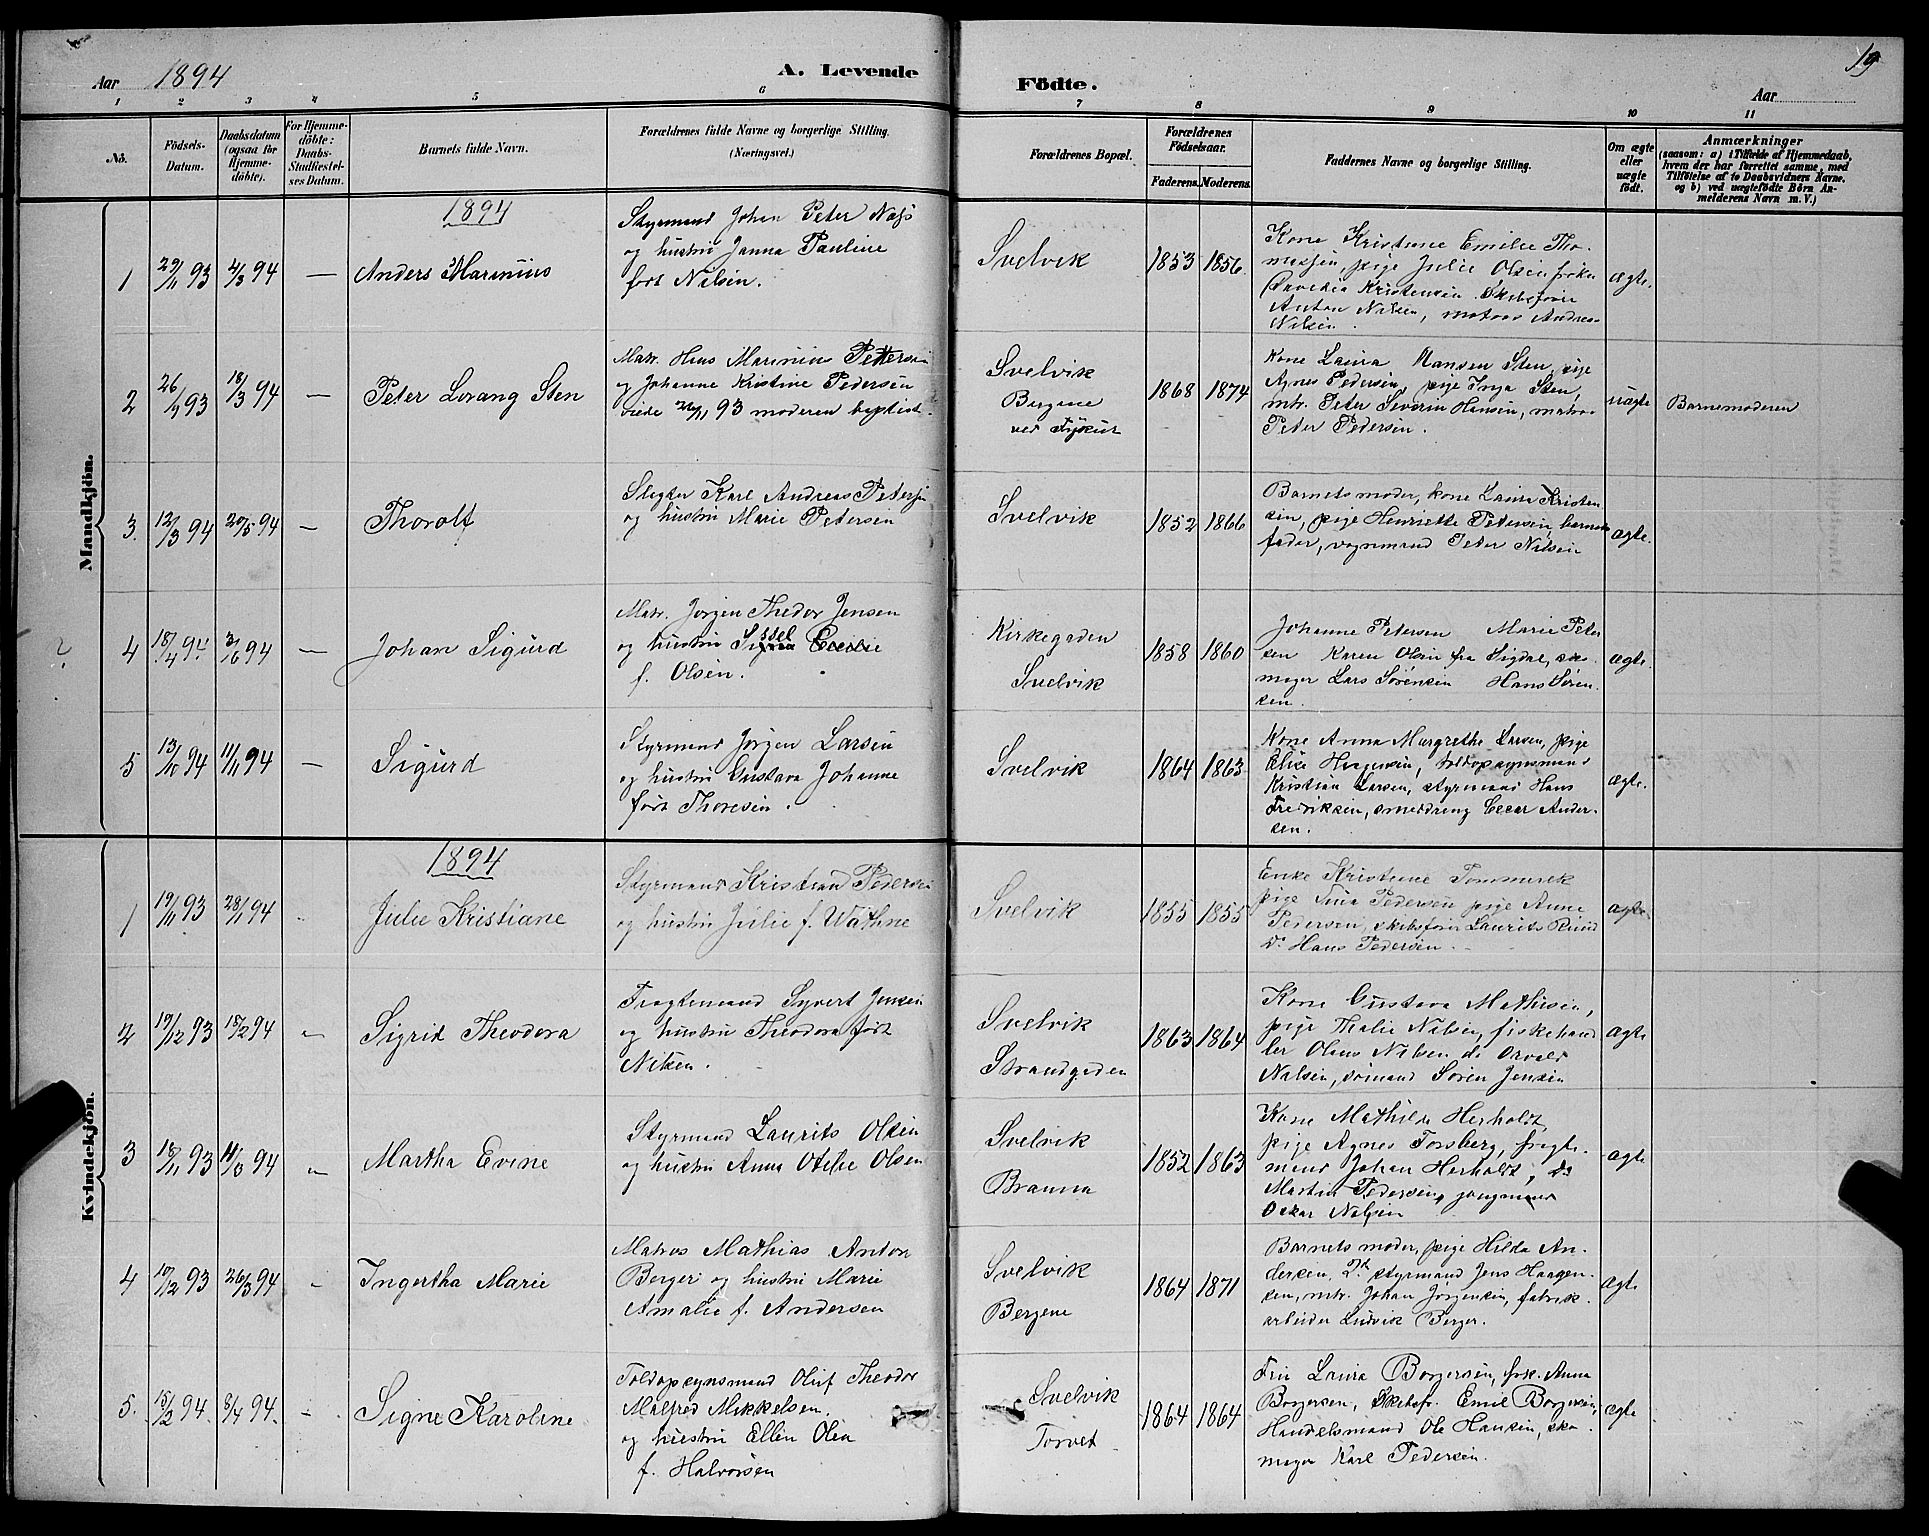 Aar 1894
A. Levende
Födte.
Aar
19
1
2
3
4
5
6
7
8
9
10
11
No.
Födsels-
Datum.
Daabsdatum
(ogsaa for
Hjemme-
döbte).
For Hjemme-
döbte:
Daabs-
Stadfæstel-
ses Datum.
Barnets fulde Navn.
Forældrenes fulde Navne og borgerlige Stilling.
(Næringsvei.)
Forældrenes Bopæl.
Forældrenes
Födselsaar.
Faderens.
Moderens.
Faddernes Navne og borgerlige Stilling.
Om ægte
eller
uægte
födt.
Anmærkninger
(saasom: a) i Tilfælde af Hjemmedaab,
hvem der har forrettet samme, med
Tilföielse af to Daabsvidners Navne.
og b) ved uægtefödte Börn An-
melderens Navn m. V.)
Mandkjön.
1894
1
29/11 93
4/3 94
—
Anders Marinius
Styrmand Johan Peter Næss
og hustru Janna Pauline
født Nilsen.
Svelvik
1853
1856.
Kone Kristine Emilie Tho-
massen, pige Julie Olsen, frøken
Kristensen. Skibsfører
Anton Nilsen, matros Andreas
Nilsen.
ægte.
2
26/9 93
18/3 94
—
Peter Lorang Sten
Matr. Hans Marinius Pettersen
og Johanne Kristine Pedersen
viede 26/11 93 moderen baptist.
Svelvik
Bergene
ved
1868
1874
Kone Laura Hansen Sten, pige
Agnes Pedersen, pige Inga Sten,
mtr. Peter Severin Hansen, matros
Peter Pedersen.
uægte
Barnemoderen
3.
12/3 94
20/5 94
—
Thorolf
Slagter Karl Andreas Petersen
og hustru Marie Petersen
Svelvik
1852
1866
Barnets moder, kone Laura Kristen
sen, pige Henriette Petersen, barnets
fader, vognmand Peter Nilsen
ægte.
?
4
18/4 94
3/6 94
—
Johan Sigurd
Matr. Jørgen Thedor Jensen
og hustru Sissel
f. Olsen.
Kirkegaden
Svelvik
1858
1860
Johanne Petersen Marie Peter
sen Karen Olsen fra Sigdal, sko-
mager Lars Sørensen Hans Søren
sen.
ægte.
5
13/10 94
11/11 94
—
Sigurd
Styrmand Jørgen Larsen
og hustru Gustava Johanne
født Thoresen.
Svelvik
1864
1863
Kone Anna Margrethe Larsen, pige
Elise Haagensen, toldopsynsmand
Kristian Larsen, styrmand Hans
Fredriksen, smeddreng Oscar Ander-
sen.
ægte.
Kvindekjön.
1894
1
19/11 93
28/1 94
Julie Kristiane
Styrmand Kristian Pedersen
og hustru Julie f. Wathne
Svelvik
1855
1855
Enke Kristine Tommerek
pige Tina Pedersen pige Anna
Pedersen, skibsfører Laurits Ruud
Do Hans Pedersen.
ægte
2
19/12 93
18/2 94
Sigrid Theodora
Fragtemand Syvert Jensen
og hustru Theodora født
Nilsen.
Svelvik
Strandgaden
1863
1864
Kone Gustava Mathisen,
pige Thalie Nilsen, fiskehand
ler Olaus Nilsen do Osvald
Nalsen, sømand Søren Jensen
ægte
3
18/11 93
11/3 94
Martha Evine
Styrmand Laurits Olsen
og hustru Anna Otilie Olsen
Svelvik
Branna
1852
1863
Kone Mathilde Herholdt,
pige Agnes Forsberg, fragte-
mand Johan Herholdt, do
Martin Pedersen, jungmand
Oskar Nalsen
ægte
4
10/12 93
26/3 94
Ingertha Marie
Matros Mathias Anton
Berger og hustru Marie
Amalie f. Andersen
Svelvik
Bergene
1864
1871
Barnets moder, pige Hilda An-
dersen, styrmand Jens Haagen-
sen, mtr. Johan Jørgensen, fabrik-
arbeider Ludvik Berger.
ægte
5.
15/2 94
8/4 94.
Signe Karoline
Toldopsynsmand Oluf Theodor
Malfred Mikkelsen.
og hustru Ellen Olea
f. Halvorsen
Svelvik
Torvet
1864
1864
Fru Laura Borgersen, frk. Anna
Borgersen, Skibsf. Emil Borgersen,
Handelsmand Ole Hansen, sko-
mager Karl Pedersen.
ægte